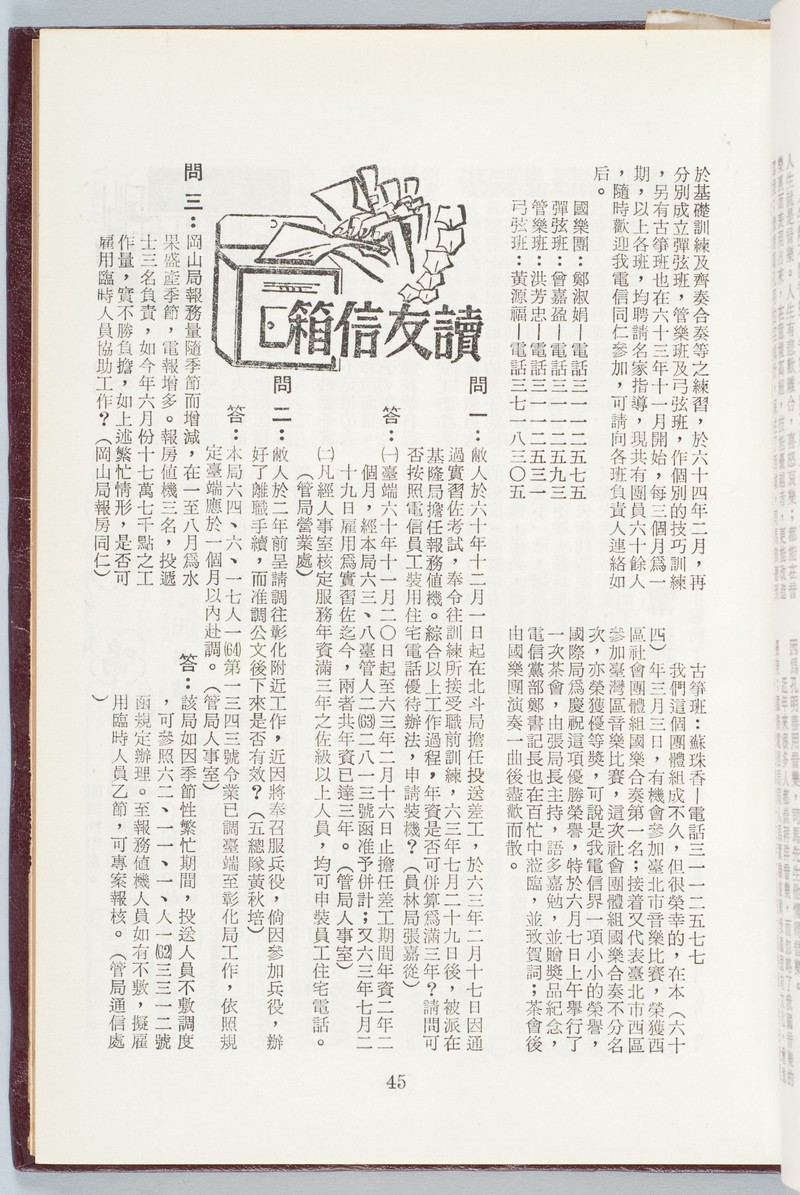 於基礎訓練及齊奏合奏等之練習，於六十四年二月，再
分別成立彈弦班，管樂班及弓弦班，作個別的技巧訓練
，另有古箏班也在六十三年十一月開始，每三個月為一
期，以上各班，均聘請名家指導，現共有團員六十餘人
，隨時歡迎我電信同仁參加，可請向各班負責人連絡如
后。
國樂團：鄭淑娟—電話三一一二五七五
彈弦班：曾嘉盈—電話三一一二五九三
管樂班：洪芳忠—電話三一一二五三一
弓弦班：黃源福—電話三七一八三〇五
古箏班：蘇珠香—電話三一一二五七七
我們這個團體組成不久，但很榮幸的，在本（六十
四）年三月三日，有機會參加臺北市音樂比賽，榮獲西
區社會團體組國樂合奏第一名；接着又代表臺北市西區
參加臺灣區音樂比賽，這次社會團體組國樂合奏不分名
次，亦榮獲優等獎，可說是我電信界一項小小的榮譽，
國際局為慶祝這項優勝榮譽，特於六月七日上午舉行了
一次茶會，由張局長主持，語多嘉勉，並贈獎品紀念，
電信黨部鄭書記長也在百忙中蒞臨，並致賀詞；茶會後
由國樂團演奏一曲後盡歡而散。
讀友信箱
問一：敝人於六十年十二月一日起在北斗局擔任投送差工，於六三年二月十七日因通
過實習佐考試，奉令往訓練所接受職前訓練，六三年七月二十九日後，被派在
基隆局擔任報務值機。綜合以上工作過程，年資是否可併算為滿三年？請問可
否按照電信員工裝用住宅電話優待辦法，申請裝機？（員林局張嘉從）
答：㈠臺端六十年十一月二〇日起至六三年二月十六日止擔任差工期間年資二年二
個月，經本局六三、八臺管人二(63)二八一三號函准予併計；又六三年七月二
十九日雇用為實習佐迄今，兩者共年資已達三年。（管局人事室）
㈡凡經人事室核定服務年資滿三年之佐級以上人員，均可申裝員工住宅電話。
（管局營業處）
問二：敝人於二年前呈請調往彰化附近工作，近因將奉召服兵役，倘因參加兵役，辦
好了離職手續，而准調公文後下來是否有效？（五總隊黃秋培）
答：本局六四、六、一七人一(64)第一三四三號令業已調臺端至彰化局工作，依照規
定臺端應於一個月以內赴調。（管局人事室）
問三：岡山局報務量隨季節而增減，在一至八月為水
果盛產季節，電報增多。報房值機三名，投遞
士三名負責，如今年六月份十七萬七千點之工
作量，實不勝負擔，如上述繁忙情形，是否可
雇用臨時人員協助工作？（岡山局報房同仁）
答：該局如因季節性繁忙期間，投送人員不敷調度
，可參照六二、一一、一、人一(62)三三一二號
函規定辦理。至報務值機人員如有不敷，擬雇
用臨時人員乙節，可專案報核。（管局通信處
）
45